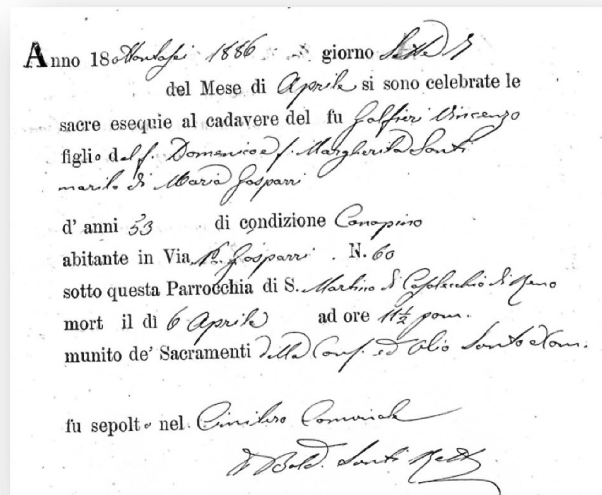 Anno 18ottantasei 1886 giorno Sette 7
del Mese di Aprile si sono celebrate le
sacre esequie al cadavere del fu Galfieri Vincenzo
figlio del f. Domenico e f. Margherita Santi
marito di Maria Gasparri
d' anni 53 di condizione Canapino
abitante in Via Gasparri . N. 60
sotto questa Parrocchia di S. Martino di Casalecchio di Reno
mort il dì 6 Aprile ad ore 11½ pom.
munito de' Sacramenti della Conf. ed Olio Santo
fu sepolto nel Cimitero Comunale
Bald. Santi